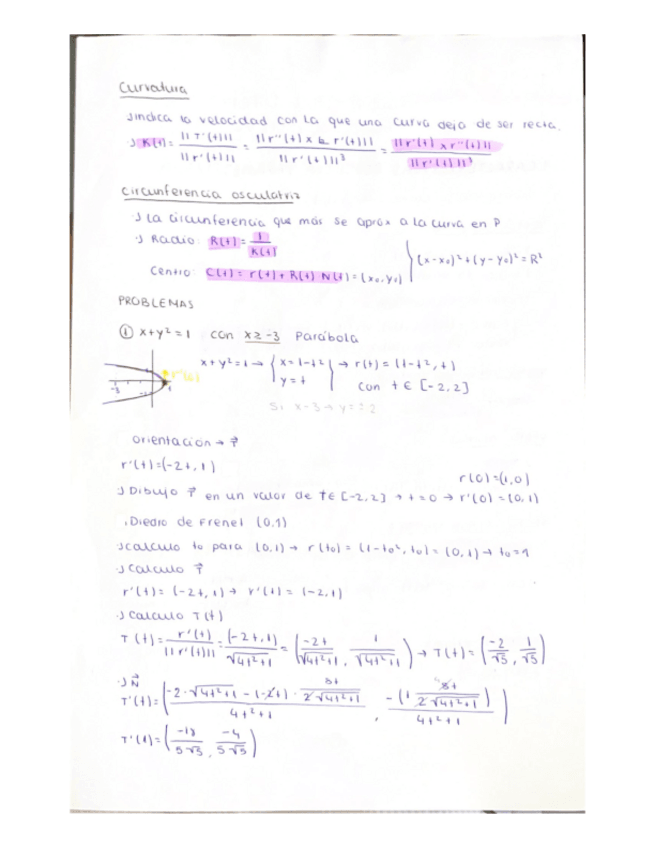 Curvatura
→ indica la velocidad con la que una curva deja de ser recta.
→ K(t) = ||T'(t)|| / ||r'(t)|| = ||r''(t) x r'(t)|| / ||r'(t)||³ = ||r'(t) x r''(t)|| / ||r'(t)||³
Circunferencia osculatriz
→ La circunferencia que más se aprox a la curva en P
→ Radio: R(t) = 1 / K(t)
Centro: C(t) = r(t) + R(t) N(t) = (x₀, y₀)
(x-x₀)² + (y-y₀)² = R²
PROBLEMAS
① x+y² = 1 con x ≥ -3 Parábola
x+y² = 1 → { x = 1-t² y = t } → r(t) = (1-t², t)
con t ∈ [-2,2]
-3 1 r'(0)
Si x=-3 → y=±2
Orientación → r⃗'
r'(t) = (-2t, 1)
r(0) = (1,0)
→ Dibujo r⃗' en un valor de t ∈ [-2,2] → t=0 → r'(0) = (0,1)
Diedro de Frenet (0,1)
→ Calculo t₀ para (0,1) → r(t₀) = (1-t₀², t₀) = (0,1) → t₀=1
→ Calculo r⃗'
r'(t) = (-2t, 1) → r'(1) = (-2,1)
→ Calculo T(t)
T(t) = r'(t) / ||r'(t)|| = (-2t, 1) / √4t²+1 = ( -2t / √4t²+1 , 1 / √4t²+1 ) → T(t) = ( -2 / √5 , 1 / √5 )
→ N⃗
T'(t) = ( -2·√4t²+1 - (-2t) · 8t / 2√4t²+1 / 4t²+1 , -(1 8t / 2√4t²+1 ) / 4t²+1 )